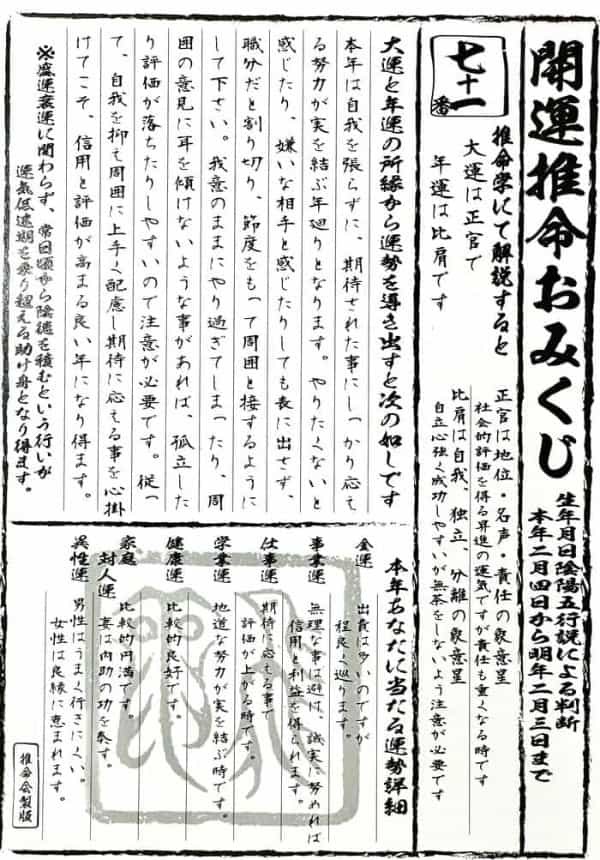 開運推命おみくじ
生年月日陰陽五行説による判断
本年二月四日から明年二月三日まで
七十一
番
推命学にて解説すると
大運は正官で
年運は比肩です
正官は地位・名声・責任の象意星
社会的評価を得る昇進の運気ですが責任も重くなる時です
比肩は自我、独立、分離の象意星
自立心強く成功しやすいが無茶をしないよう注意が必要です
大運と年運の所縁から運勢を導き出すと次の如しです
本年は自我を張らずに、期待された事にしっかり応え
る努力が実を結ぶ年廻りとなります。やりたくないと
感じたり、嫌いな相手と感じたりしても表に出せず、
職分だと割り切り、節度をもって周囲と接するように
して下さい。我意のままにやり過ぎてしまったり、周
囲の意見に耳を傾けないような事があれば、孤立した
り評価が落ちたりしやすいので注意が必要です。従っ
て、自我を抑え周囲に上手く配慮し期待に応える事を心掛
けてこそ、信用と評価が高まる良い年になり得ます。
※盛運衰運に関わらず、常日頃から陰徳を積むという行いが
運気低迷期を乗り超える助け舟となり得ます。
本年あなたに当たる運勢詳細
金運
出費は多いのですが
程良く巡ります。
事業運
無理な事は避け、誠実に努めれば
信用と利益を得られます。
仕事運
期待に応える事で
評価が上がる時です。
学業運
地道な努力が実を結ぶ時です。
健康運
比較的良好です。
家庭
対人運
比較的円満です。
妻は内助の功を奏す。
異性運
男性はうまく行きにくい。
女性は良縁に恵まれます。
推命会製版